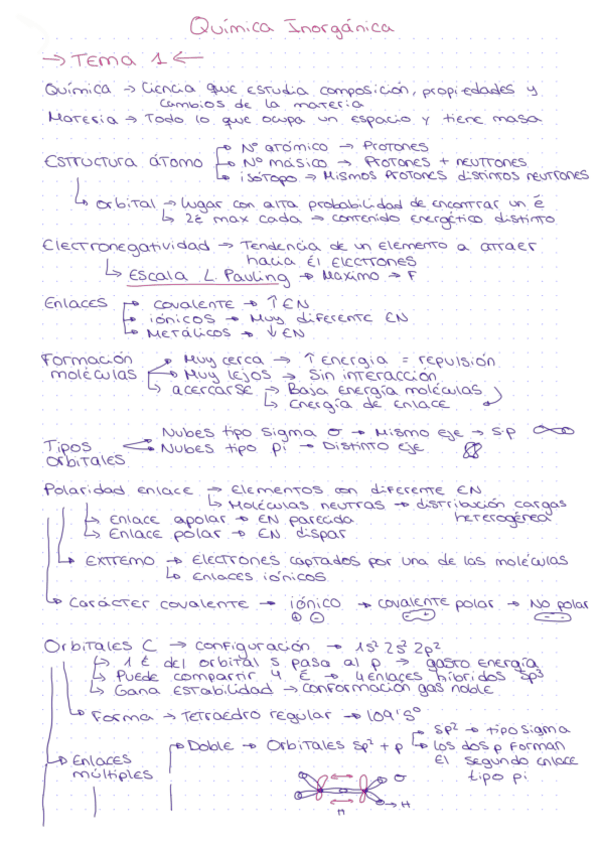 Química Inorgánica
→ Tema 1 ←
Química → Ciencia que estudia composición, propiedades y
cambios de la materia
Materia → Todo lo que ocupa un espacio y tiene masa
Estructura átomo → Nº atómico → Protones
→ Nº másico → Protones + neutrones
→ isótopo → Mismos protones distintos neutrones
→ orbital → lugar con alta probabilidad de encontrar un é
→ 2é max cada → contenido energético distinto
Electronegatividad → Tendencia de un elemento a atraer
hacia él electrones
→ Escala L. Pauling → Maximo → F
Enlaces → covalente → ↑ EN
→ iónicos → Muy diferente EN
→ Metálicos → ↓ EN
Formación moléculas → Muy cerca → ↑ energia = repulsión
→ Muy lejos → Sin interacción
→ acercarse → Baja energía moléculas
→ Energía de enlace
Tipos orbitales → Nubes tipo sigma σ → Mismo eje → s.p
→ Nubes tipo pi → Distinto eje
Polaridad enlace → Elementos con diferente EN
→ Moléculas neutras → distribución cargas
heterogénea
→ Enlace apolar → EN parecida
→ Enlace polar → EN dispar
→ Extremo → Electrones captados por una de las moléculas
→ Enlaces iónicos
→ Carácter covalente → iónico → covalente polar → No polar
+ -
+ -
- -
Orbitales C → configuración → 1s² 2s² 2p²
→ 1 é del orbital s pasa al p → gasto energía
→ Puede compartir 4 é → 4 enlaces híbridos sp³
→ Gana estabilidad → conformación gas noble
→ Forma → Tetraedro regular → 109'5º
→ Enlaces múltiples → Doble → Orbitales sp² + p → sp² → tipo sigma
→ los dos p forman
el segundo enlace
tipo pi
σ
π → H